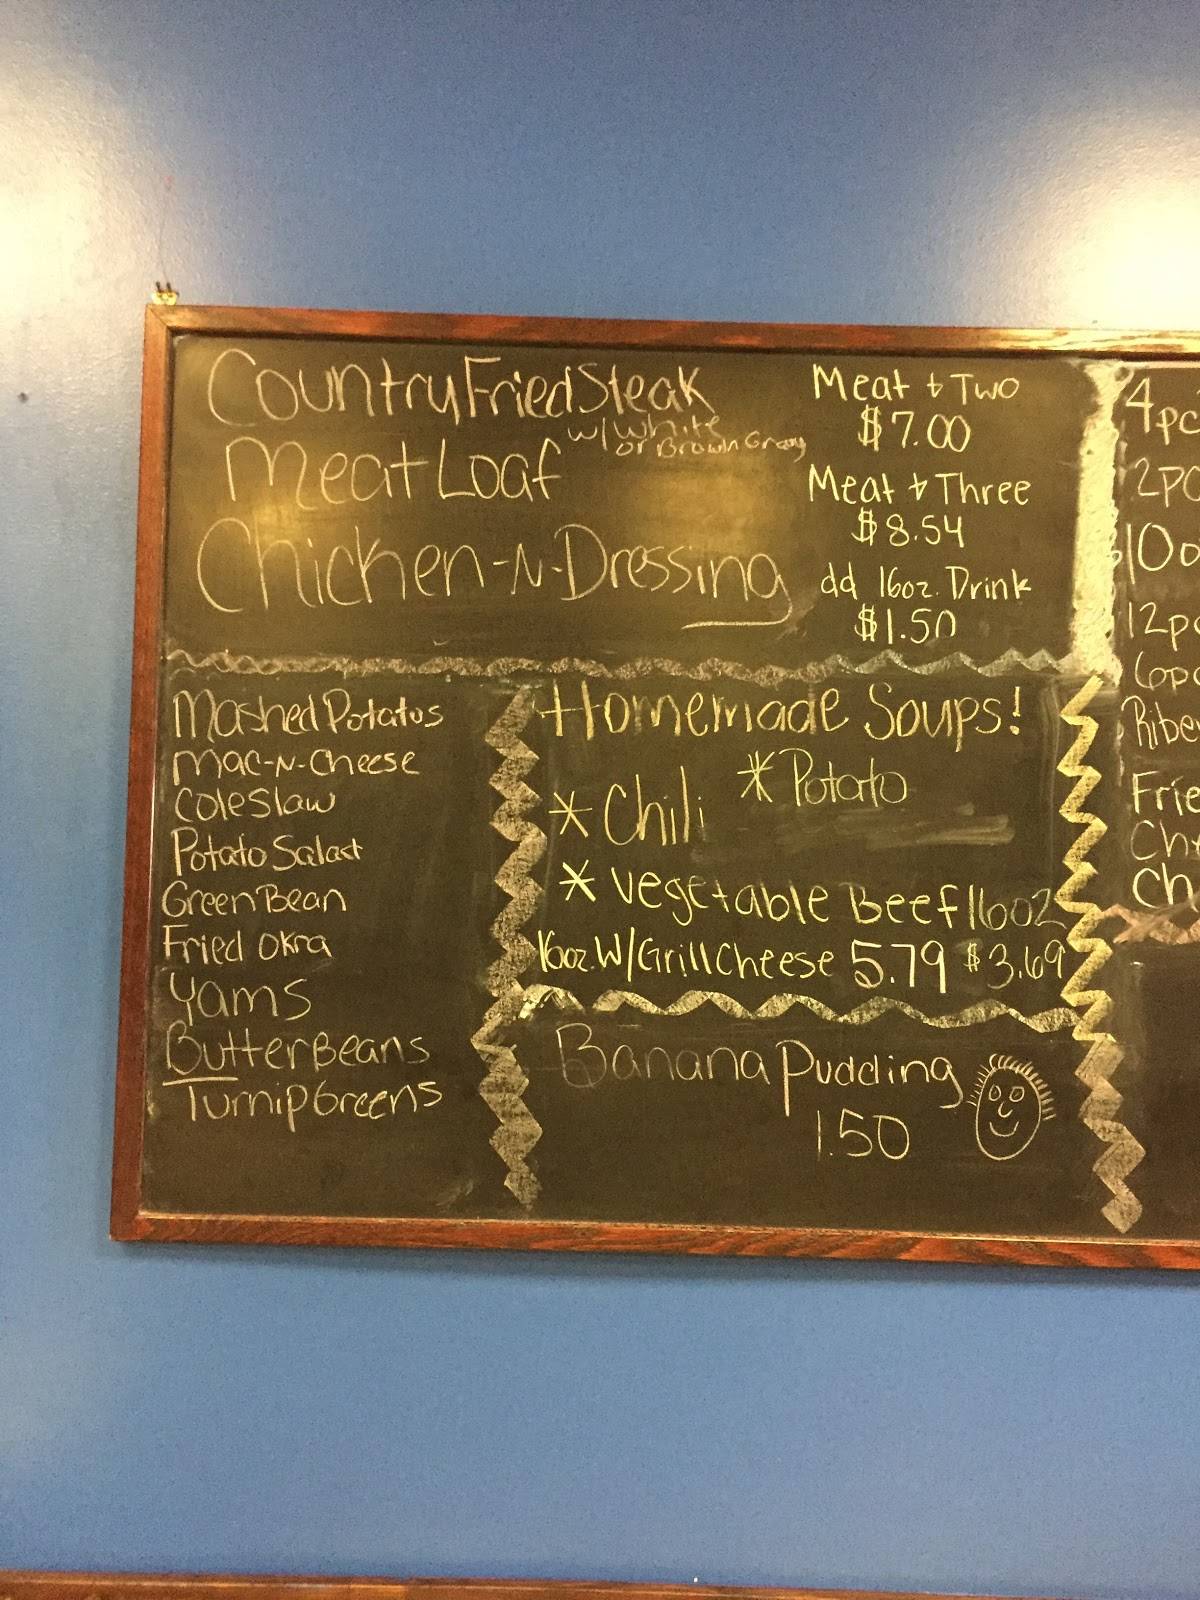 Country Fried Steak
w/ White
or Brown Gravy
Meat Loaf
Chicken-N-Dressing
Meat & Two
$7.00
Meat & Three
$8.54
dd 16oz. Drink
$1.50
Mashed Potatos
Mac-N-Cheese
Cole Slaw
Potato Salad
Green Bean
Fried Okra
Yams
Butter Beans
Turnip Greens
Homemade Soups!
* Potato
* Chili
* Vegetable Beef 16oz
16oz. W/ Grill Cheese 5.79 $3.69
Banana Pudding
1.50
4pc
2pc
12pc
6pc